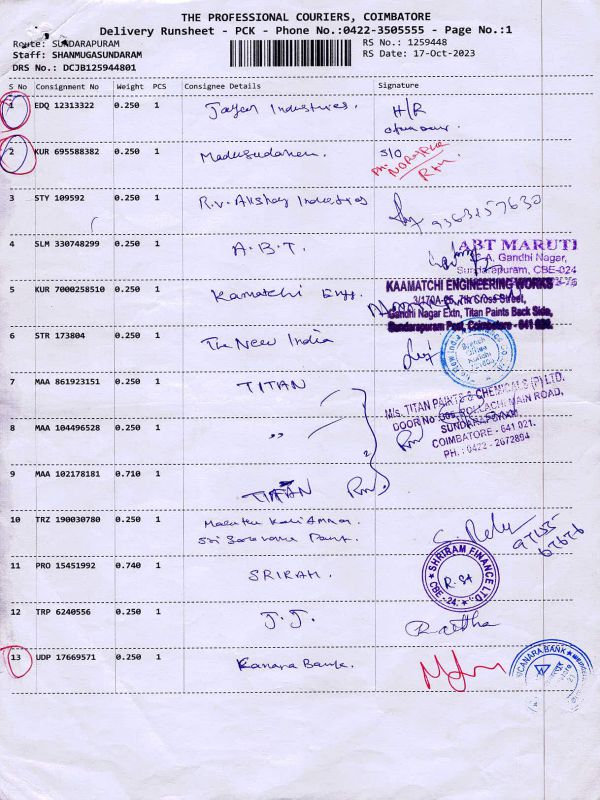 THE PROFESSIONAL COURIERS, COIMBATORE
Delivery Runsheet - PCK - Phone No.:0422-3505555 - Page No.:1
Route: SUNDARAPURAM
RS No.: 1259448
Staff: SHANMUGASUNDARAM
RS Date: 17-Oct-2023
DRS No.: DCJB125944801
S No Consignment No Weight PCS Consignee Details Signature
1 EDQ 12313322 0.250 1 Industries. H/R
2 KUR 695588382 0.250 1 Madusudanan. S/O
3 STY 109592 0.250 1 R.V. Akshay Industries 9363157630
4 SLM 330748299 0.250 1 A.B.T.
ABT MARUTI
Gandhi Nagar,
Sundarapuram, CBE-024
5 KUR 7000258510 0.250 1 Kamatchi Engg.
KAAMATCHI ENGINEERING WORKS
3/170A-05, 7th Cross Street,
Gandhi Nagar Extn, Titan Paints Back Side,
Sundarapuram Post, Coimbatore - 641
6 STR 173804 0.250 1 The New India
7 MAA 861923151 0.250 1 TITAN
M/s. TITAN PAINTS & CHEMICALS (P) LTD.
DOOR No POLLACHI MAIN ROAD,
SUNDARAPURAM,
COIMBATORE - 641 021.
PH.: 0422 - 2672894
8 MAA 104496528 0.250 1 ,,
9 MAA 102178181 0.710 1 TITAN
10 TRZ 190030780 0.250 1
Sri
11 PRO 15451992 0.740 1 SRIRAM.
SHRIRAM FINANCE LTD.
CBE - 24.
12 TRP 6240556 0.250 1 J.J. Radha
13 UDP 17669571 0.250 1 Kanara Bank.
CANARA BANK